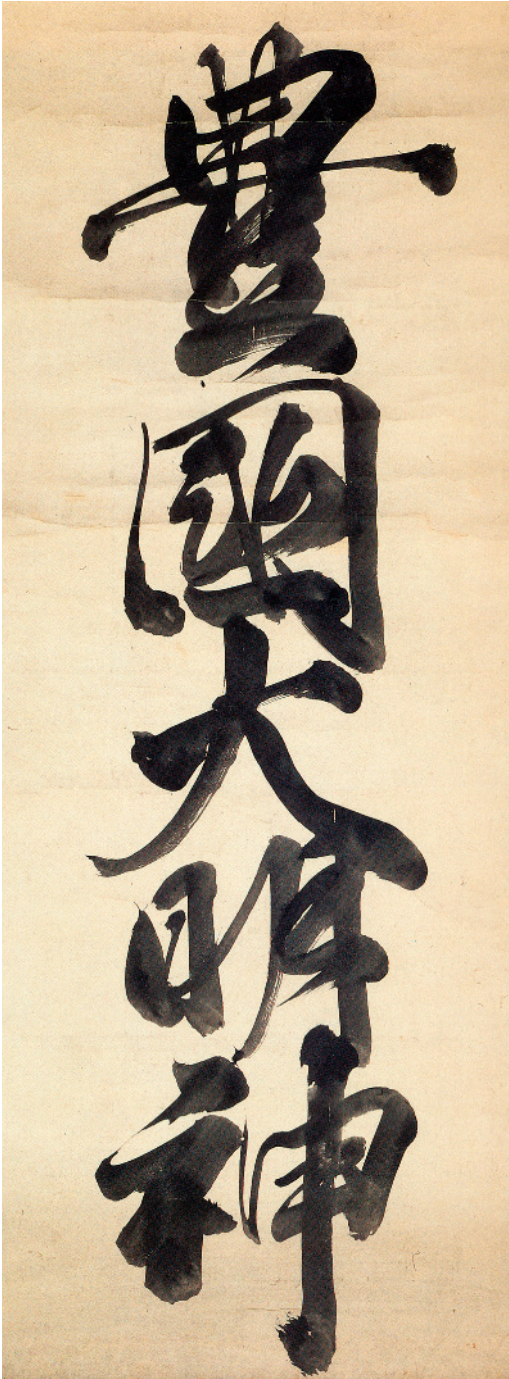 豊國大明神